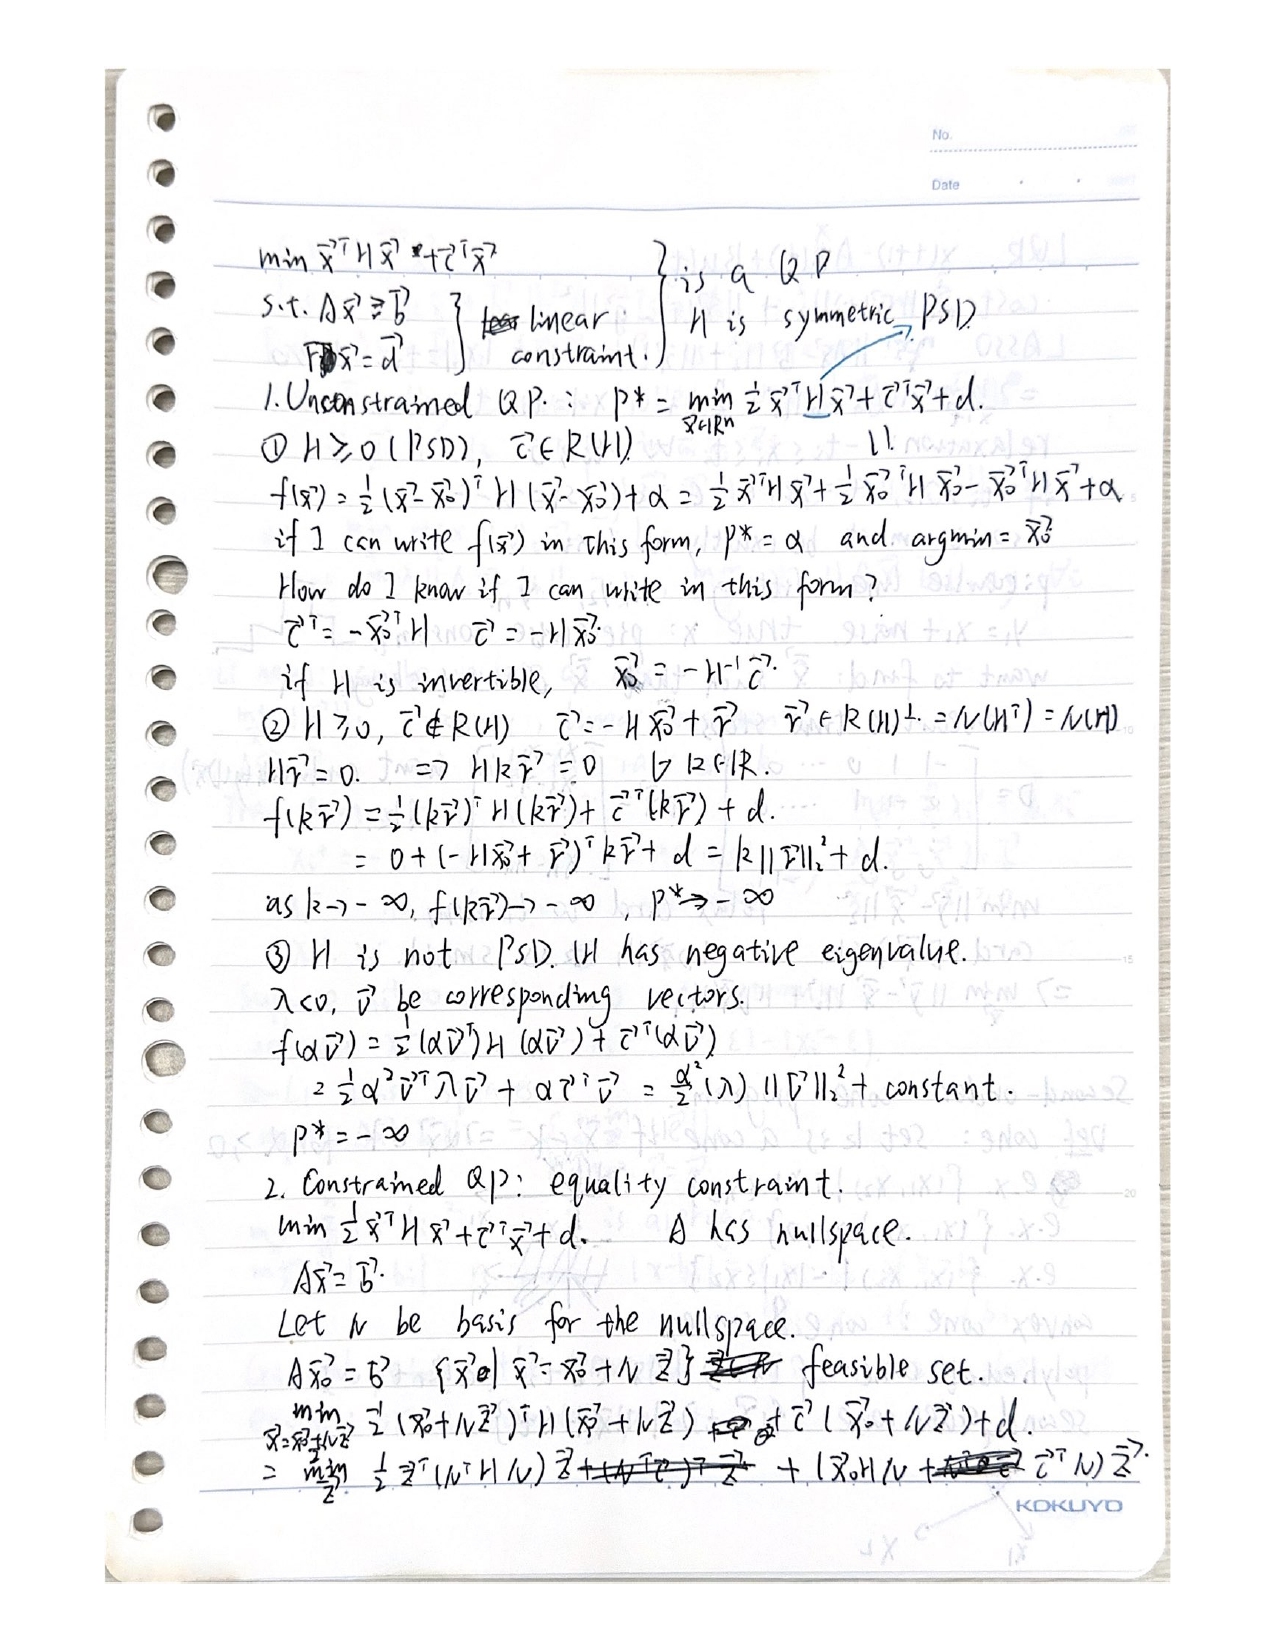 No.
Date
min x⃗ᵀHx⃗ + c⃗ᵀx⃗ } is a QP
s.t. Ax⃗ ≥ b⃗ } linear H is symmetric PSD
Fx⃗ = d⃗ constraint.
1. Unconstrained QP. : p* = min ½ x⃗ᵀHx⃗ + c⃗ᵀx⃗ + d.
x⃗∈ℝⁿ
① H ≥ 0 (PSD), c⃗ ∈ R(H)
f(x⃗) = ½ (x⃗ - x⃗₀)ᵀ H (x⃗ - x⃗₀) + α = ½ x⃗ᵀHx⃗ + ½ x⃗₀ᵀHx⃗₀ - x⃗₀ᵀHx⃗ + α
if I can write f(x⃗) in this form, p* = α and argmin = x⃗₀
How do I know if I can write in this form?
c⃗ᵀ = -x⃗₀ᵀH c⃗ = -Hx⃗₀
if H is invertible, x⃗₀ = -H⁻¹c⃗.
② H ≥ 0, c⃗ ∉ R(H) c⃗ = -Hx⃗₀ + r⃗ r⃗ ∈ R(H)⊥ = N(Hᵀ) = N(H)
Hr⃗ = 0. => Hkr⃗ = 0 ∀ k∈ℝ.
f(kr⃗) = ½ (kr⃗)ᵀ H (kr⃗) + c⃗ᵀ(kr⃗) + d.
= 0 + (-Hx⃗₀ + r⃗)ᵀ kr⃗ + d = k||r⃗||₂² + d.
as k → -∞, f(kr⃗) → -∞, p* → -∞
③ H is not PSD. H has negative eigenvalue.
λ<0, v⃗ be corresponding vectors.
f(αv⃗) = ½ (αv⃗ᵀ) H (αv⃗) + c⃗ᵀ(αv⃗)
= ½ α² v⃗ᵀ λv⃗ + αc⃗ᵀv⃗ = α²/2 (λ) ||v⃗||₂² + constant.
p* = -∞
2. Constrained QP: equality constraint.
min ½ x⃗ᵀHx⃗ + c⃗ᵀx⃗ + d. A has nullspace.
Ax⃗ = b⃗.
Let N be basis for the nullspace.
Ax⃗₀ = b⃗ {x⃗ | x⃗ = x⃗₀ + Nz⃗} feasible set.
min ½ (x⃗₀ + Nz⃗)ᵀ H (x⃗₀ + Nz⃗) + c⃗ᵀ (x⃗₀ + Nz⃗) + d.
x⃗=x⃗₀+Nz⃗
= min ½ z⃗ᵀ (NᵀHN) z⃗ + (x⃗₀HN + c⃗ᵀN) z⃗.
z⃗
KOKUYO